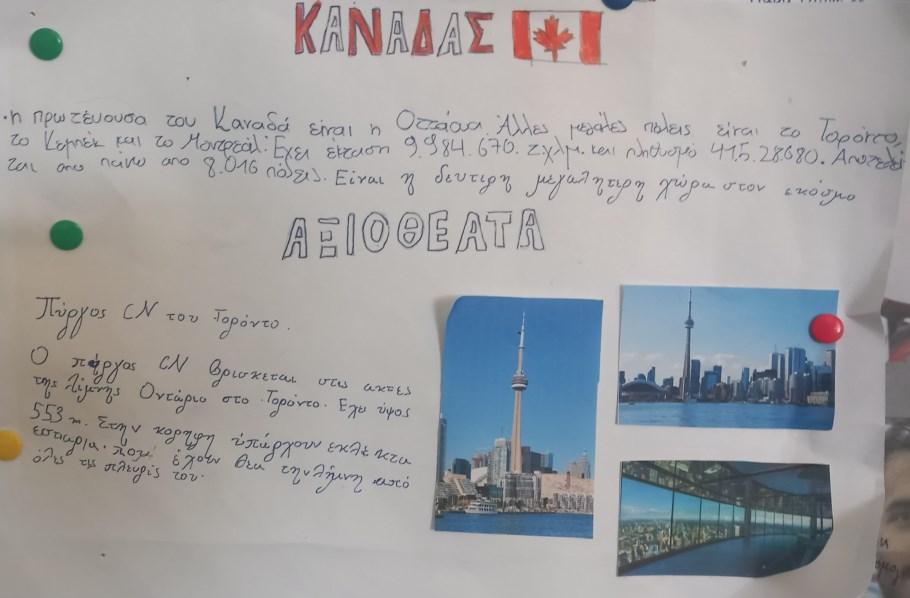 ΚΑΝΑΔΑΣ
·η πρωτέυουσα του Καναδά είναι η Οττάουα. Άλλες μεγάλες πόλεις είναι το Τορόντο,
το Κεμπέκ και το Μοντρεάλ. Έχει έκταση 9.984.670. τ.χλμ. και πληθυσμό 415.28.680. Αποτελεί
ται απο πάνω απο 8.016 πόλεις. Είναι η δευτερη μεγαλητερη χώρα στον εκόσμο
ΑΞΙΟΘΕΑΤΑ
Πύργος CN του Τορόντο.
Ο πύργος CN βρισκεται στις ακτες
της λίμνης Οντάριο στο Τορόντο. Εχει ύψος
553 m. Στην κορηφη ύπάρχουν εκλέκτα
εστιατόρια που έχουν θεα την λήμνη από
όλες τις πλευρές του.